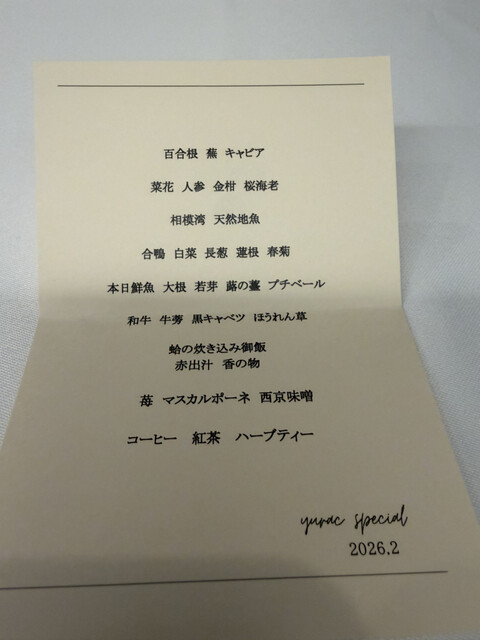 百合根 蕪 キャビア
菜花 人参 金柑 桜海老
相模湾 天然地魚
合鴨 白菜 長葱 蓮根 春菊
本日鮮魚 大根 若芽 蕗の薹 プチベール
和牛 牛蒡 黒キャベツ ほうれん草
蛤の炊き込み御飯
赤出汁 香の物
苺 マスカルポーネ 西京味噌
コーヒー 紅茶 ハーブティー
yurac special
2026.2